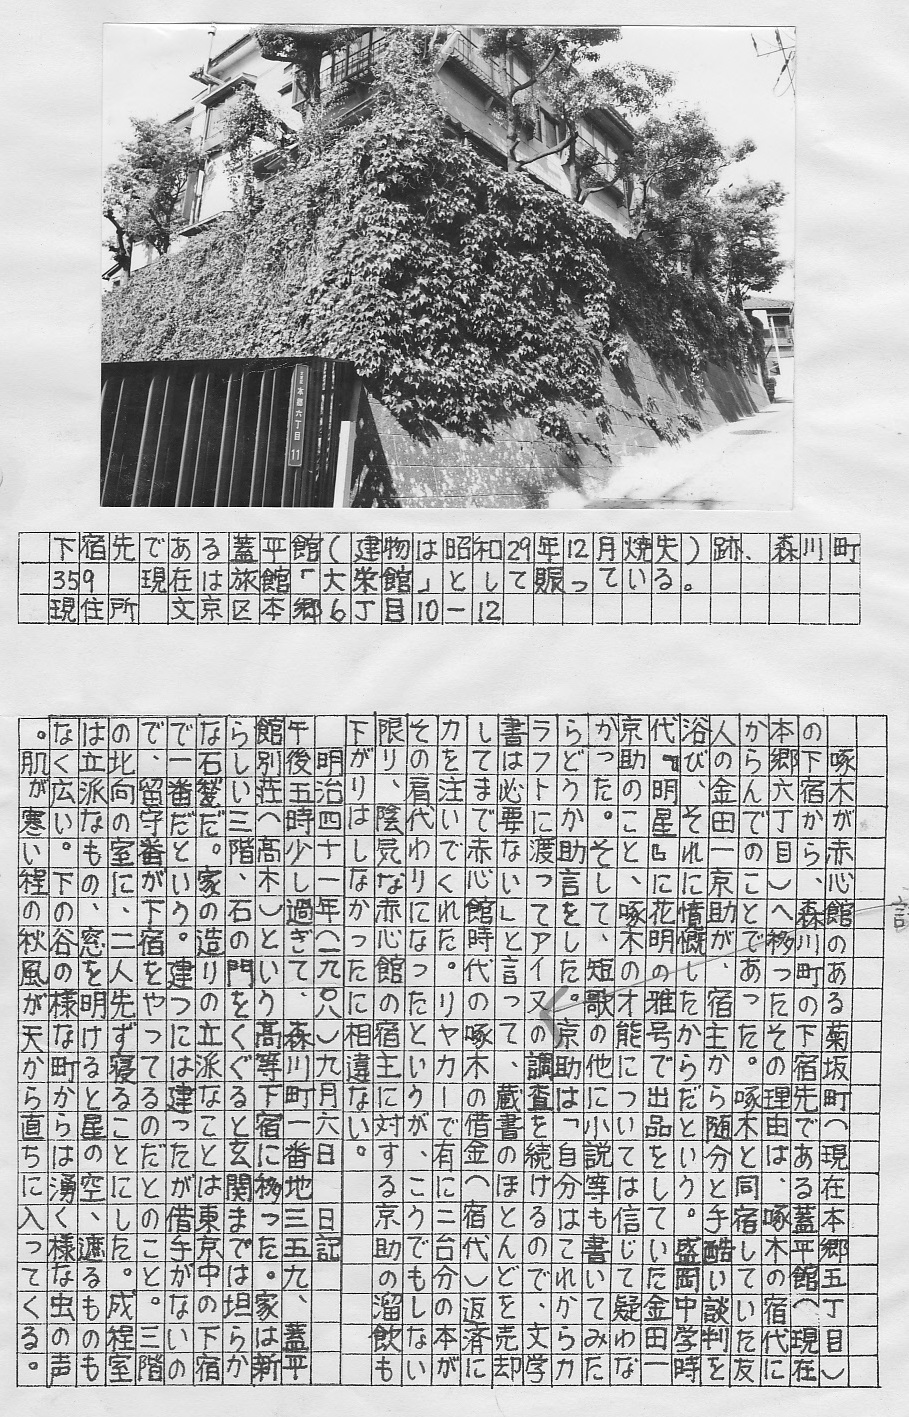 本郷六丁目 11
下宿先である蓋平館(建物は昭和29年12月焼失)跡、森川町
359 現在は旅館「大栄館」として賑っている。
現住所 文京区本郷6丁目10-12
啄木が赤心館のある菊坂町(現在本郷五丁目)
の下宿から、森川町の下宿先である蓋平館(現在
本郷六丁目)へ移ったその理由は、啄木の宿代に
からんでのことであった。啄木と同宿していた友
人の金田一京助が、宿主から随分と手酷い談判を
浴び、それに憤慨したからだという。盛岡中学時
代『明星』に花明の雅号で出品をしていた金田一
京助のこと、啄木の才能については信じて疑わな
かった。そして、短歌の他に小説等も書いてみた
らどうか助言をした。京助は「自分はこれからカ
ラフトに渡ってアイヌの調査を続けるので、文学
書は必要ない」と言って、蔵書のほとんどを売却
してまで赤心館時代の啄木の借金(宿代)返済に
力を注いでくれた。リヤカーで有に二台分の本が
その肩代わりになったというが、こうでもしない
限り、陰晃な赤心館の宿主に対する京助の溜飲も
下がりはしなかったに相違ない。
明治四十一年(一九〇八)九月六日 日記
午後五時少し過ぎて、森川町一番地三五九、蓋平
館別荘(高木)という高等下宿に移った。家は新
らしい三階、石の門をくぐると玄関までは坦らか
な石甃だ。家の造りの立派なことは東京中の下宿
で一番だという。建つには建ったが借手がないの
で、留守番が下宿をやってるのだとのこと。三階
の北向の室に、二人先ず寝ることにした。成程室
は立派なもの、窓を明けると星の空、遮るものも
なく広い。下の谷の様な町からは湧く様な虫の声
。肌が寒い程の秋風が天から直ちに入ってくる。